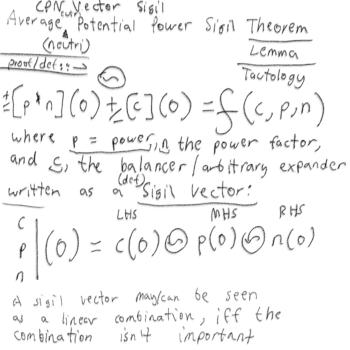 CPN Vector Sigil
cur
Average Potential Power Sigil Theorem
(neutri) Lemma
proof/def::→ Tactology
±[p*n](0) ±[c](0) = f(c,p,n)
where p = power, n the power factor,
and c, the balancer/arbitrary expander
(def)
written as a Sigil Vector:
LHS MHS RHS
c
p |(0) = c(0) ㉨ p(0) ㉨ n(0)
n
A sigil vector may/can be seen
as a linear combination, iff the
combination isn't important